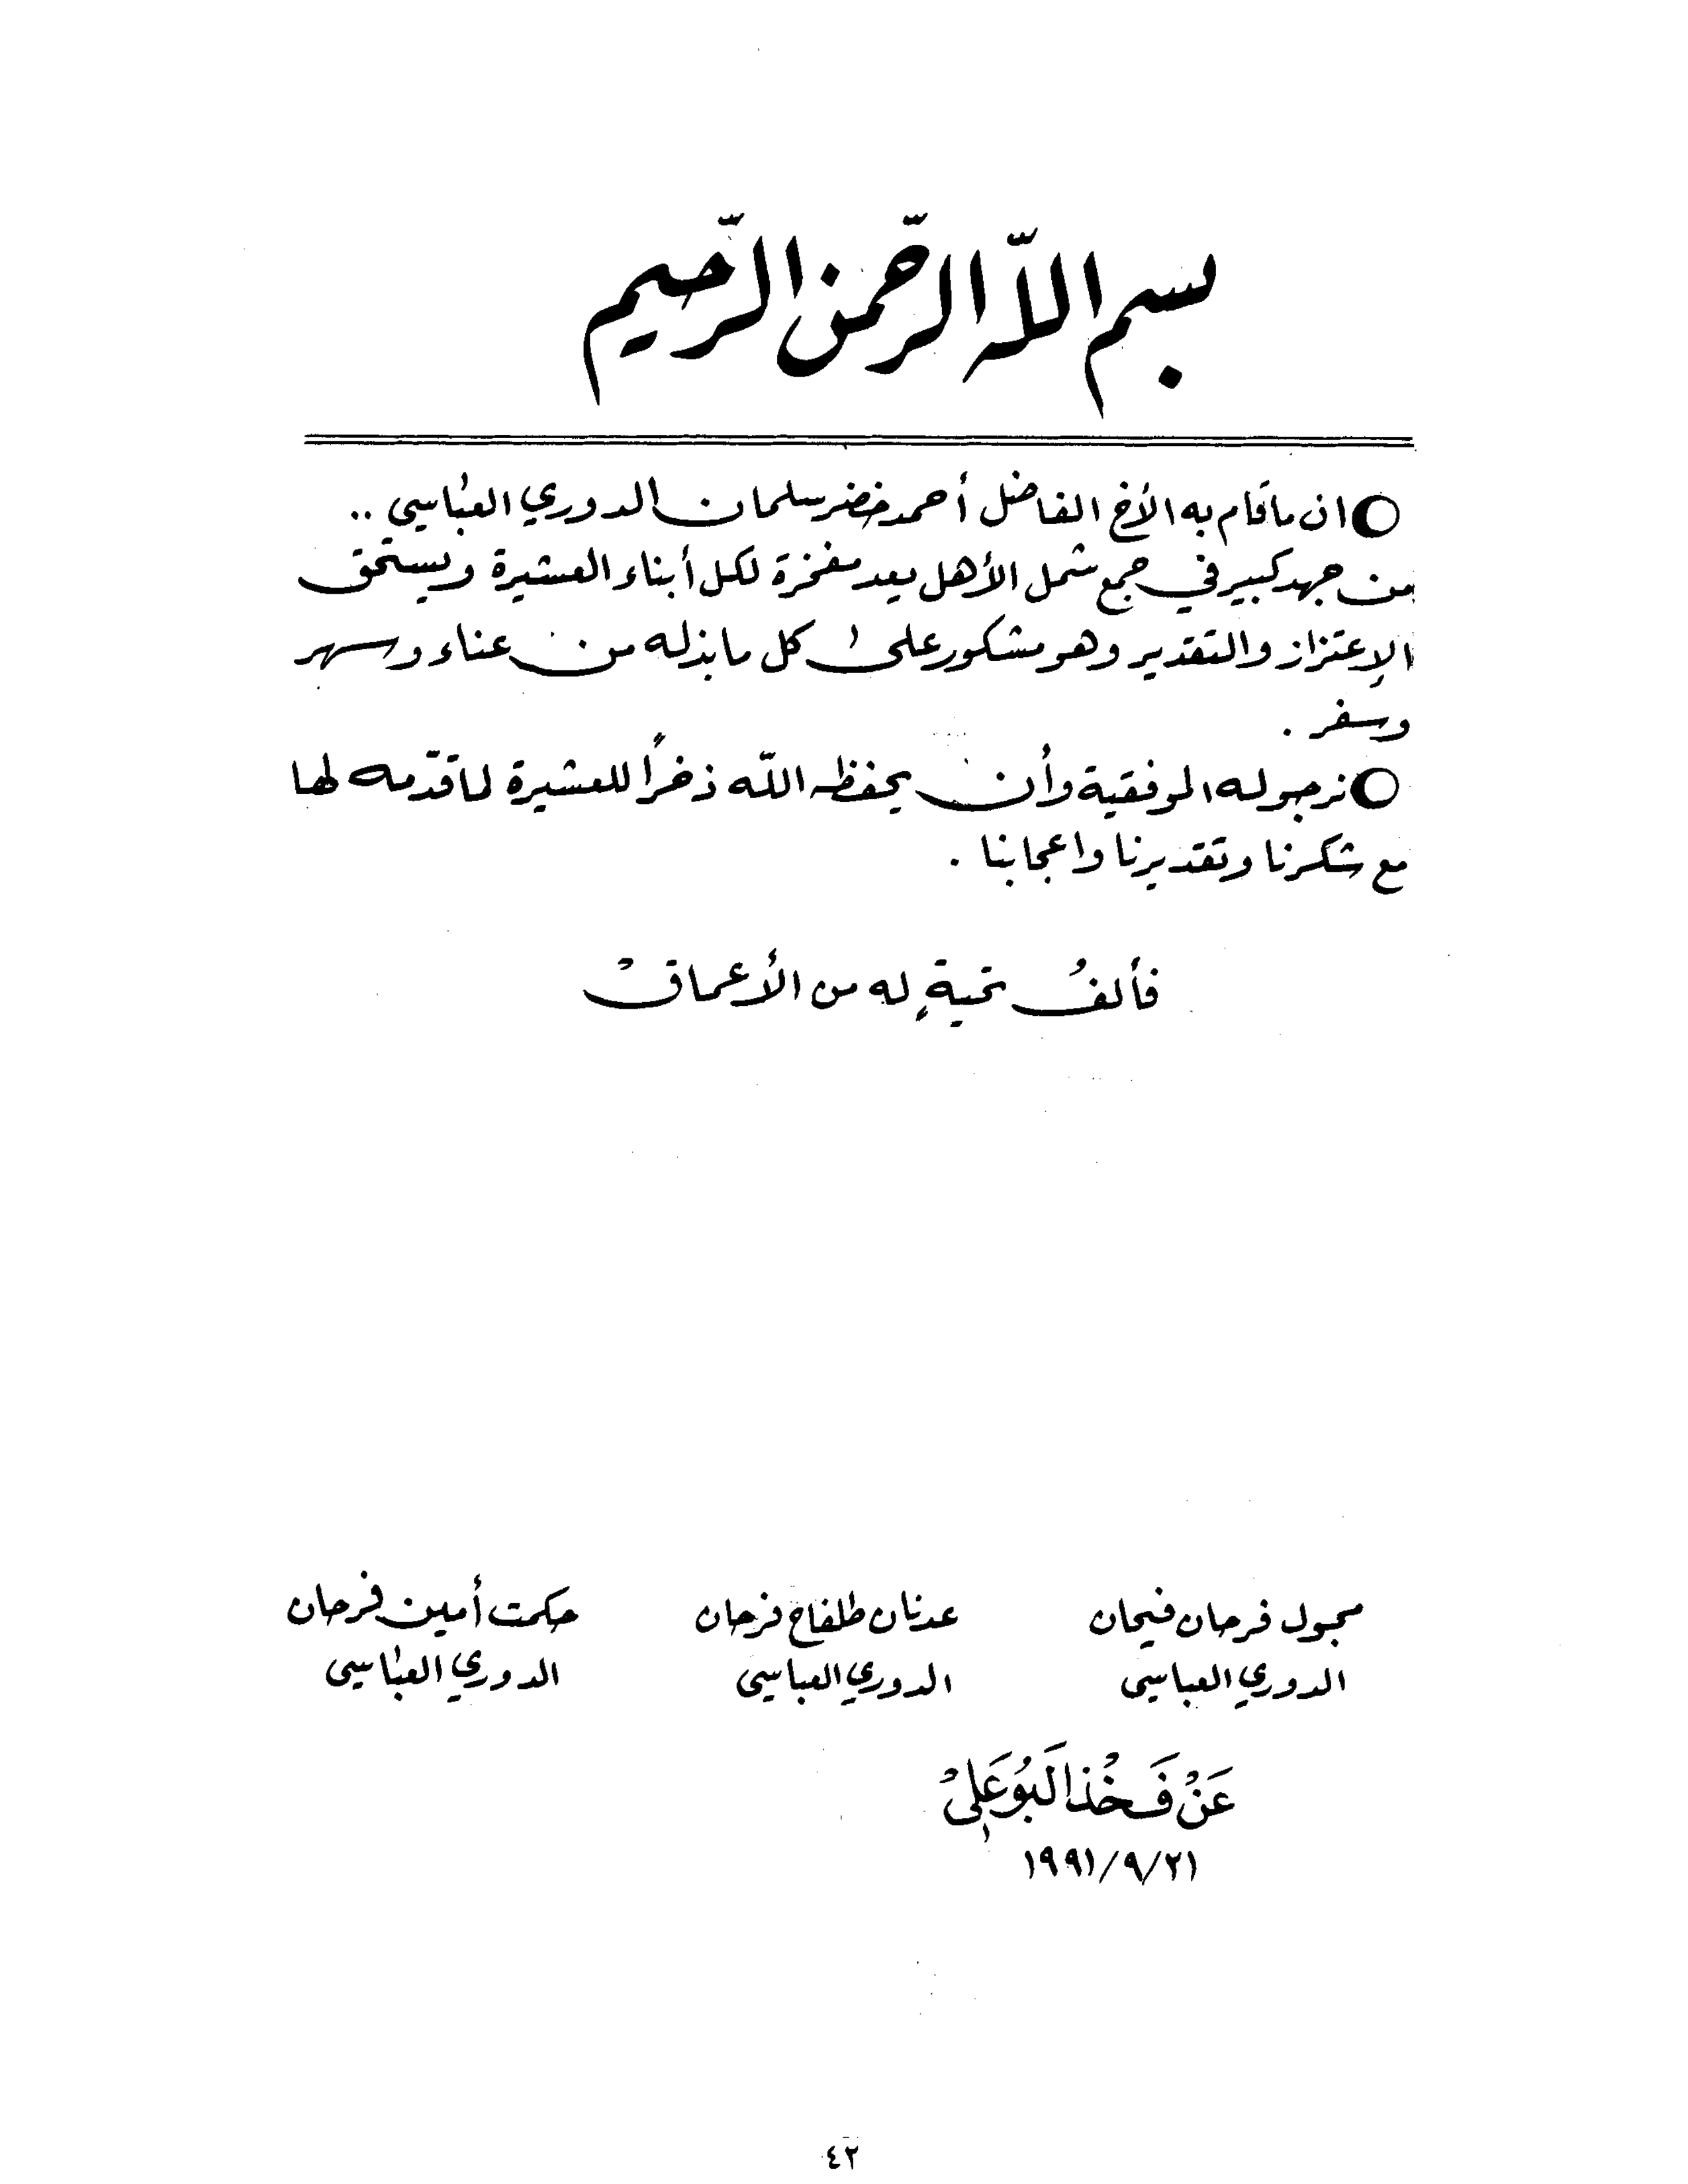 بسم اللّه الرّحمن الرّحيم
○ ان ما قام به الأخ الفاضل أحمد خضر سلمان الدوري العباسي ..
من جهد كبير في جمع شمل الأهل يعد مفخرة لكل أبناء العشيرة ويستحق
الإعتزاز والتقدير وهو مشكور على كل ما بذله من عناء وسهر
وسفر .
○ نرجو له الموفقية وأن يحفظه اللّه ذخراً للعشيرة لما قدّمه لها
مع شكرنا وتقديرنا واعجابنا .
فألفُ تحيةٍ له من الأعماقْ
مجول فرحان فيحان عدنان طلفاح فرحان حكمت أمين فرحان
الدوري العباسي الدوري العباسي الدوري العباسي
عَنْ فَخُذ البُو عَلِيْ
١٩٩١/٩/٢١
٤٢